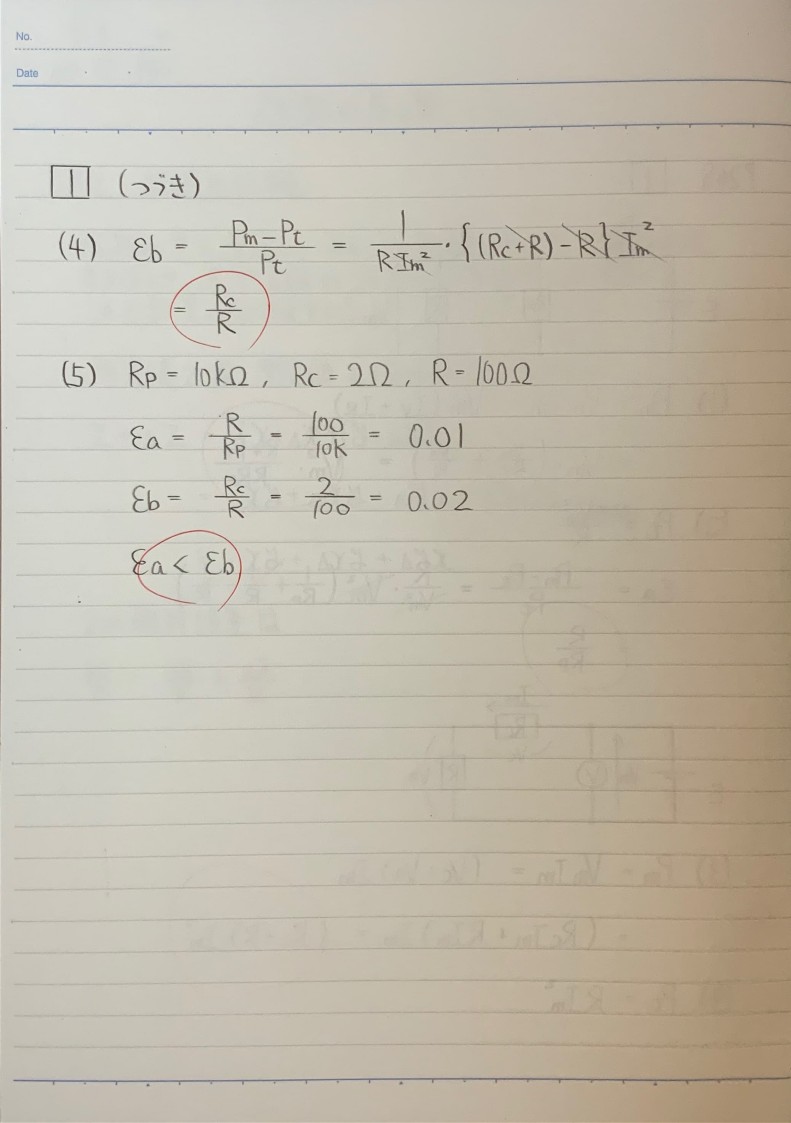 No.
Date
1 (つづき)
(4) εb = Pm-Pt/Pt = 1/RIm² · {(Rc+R)-R} Im²
= Rc/R
(5) Rp = 10kΩ, Rc = 2Ω, R = 100Ω
εa = R/Rp = 100/10k = 0.01
εb = Rc/R = 2/100 = 0.02
εa < εb